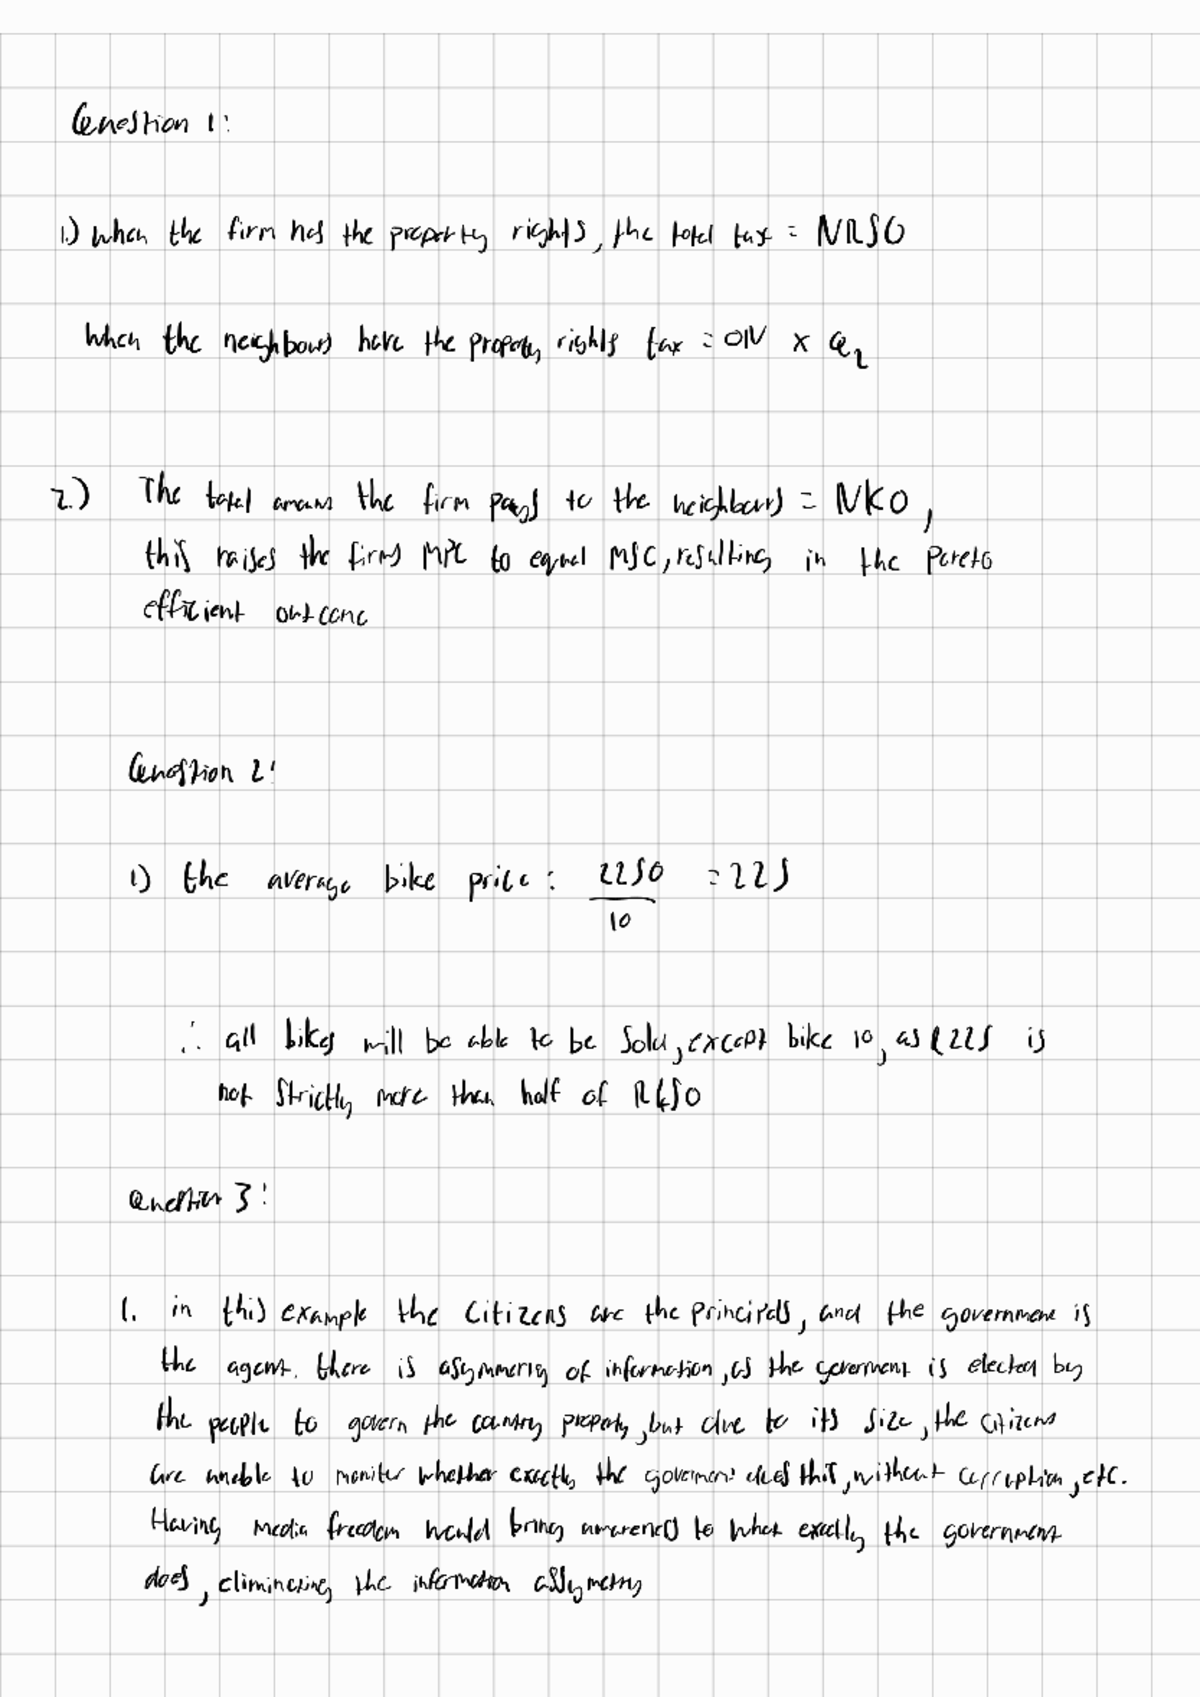 Question 1:
1.) When the firm has the property rights, the total tax = NRSO
When the neighbours have the property rights tax = ON x Q2
2.) The total amount the firm pays to the neighbours = NKO,
this raises the firms MPC to equal MSC, resulting in the pareto
efficient outcome
Question 2:
1) the average bike price: 2250/10 = 225
∴ all bikes will be able to be sold, except bike 10, as R225 is
not strictly more than half of R450
Question 3:
1. in this example the citizens are the principals, and the government is
the agent. there is asymmetry of information, as the goverment is elected by
the people to govern the country properly, but due to its size, the citizens
are unable to monitor whether exactly the government does this, without corruption, etc.
Having media freedom would bring awareness to what exactly the government
does, eliminating the information assymetry